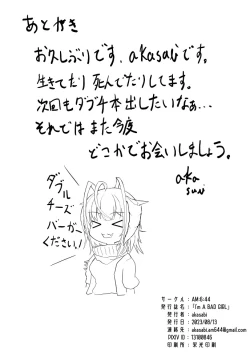 あとがき
お久しぶりです、akasabiです。
生きてたり死んでたりしてます。
次回もダブチ本出したいなぁ…
それではまた今度
どこかでお会いしましょう。
aka
sabi
ダブル
チーズ
バーガー
ください!
サークル：AM:6:44
発行誌名：「I'm A BAD GIRL」
発行者：akasabi
発行日：2023/08/13
連絡先：akasabi.am644@gmail.com
PIXIV ID：13180845
印刷所：栄光印刷